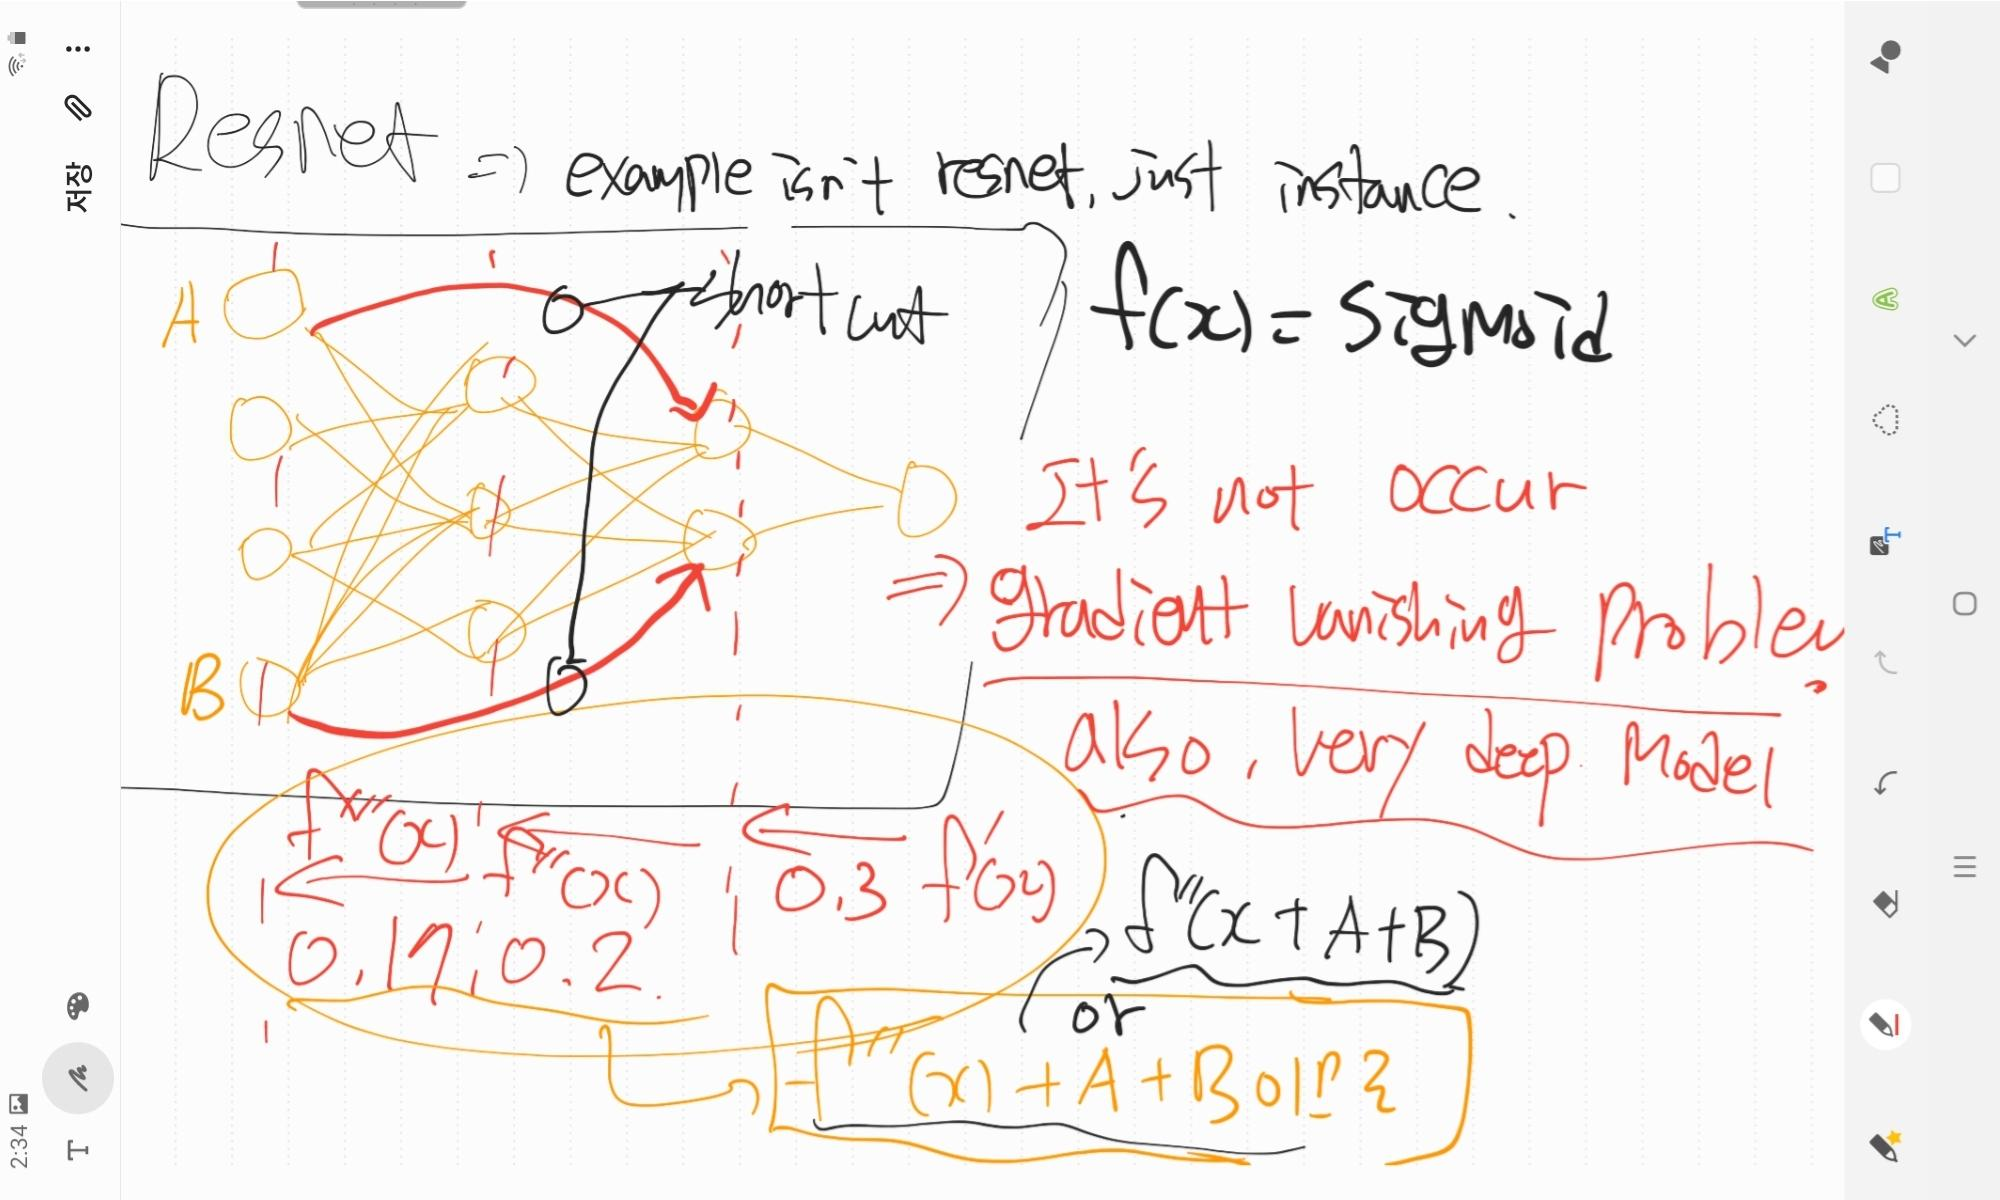 Resnet => example isn't resnet, just instance.
A
short cut
f(x) = Sigmoid
It's not occur
=> gradient vanishing problem
B
also, very deep Model
f'''(x) f''(x) 0.3 f'(x)
0.17 0.2
f''(x + A + B)
or
(x) + A + B
저장
2:34
T